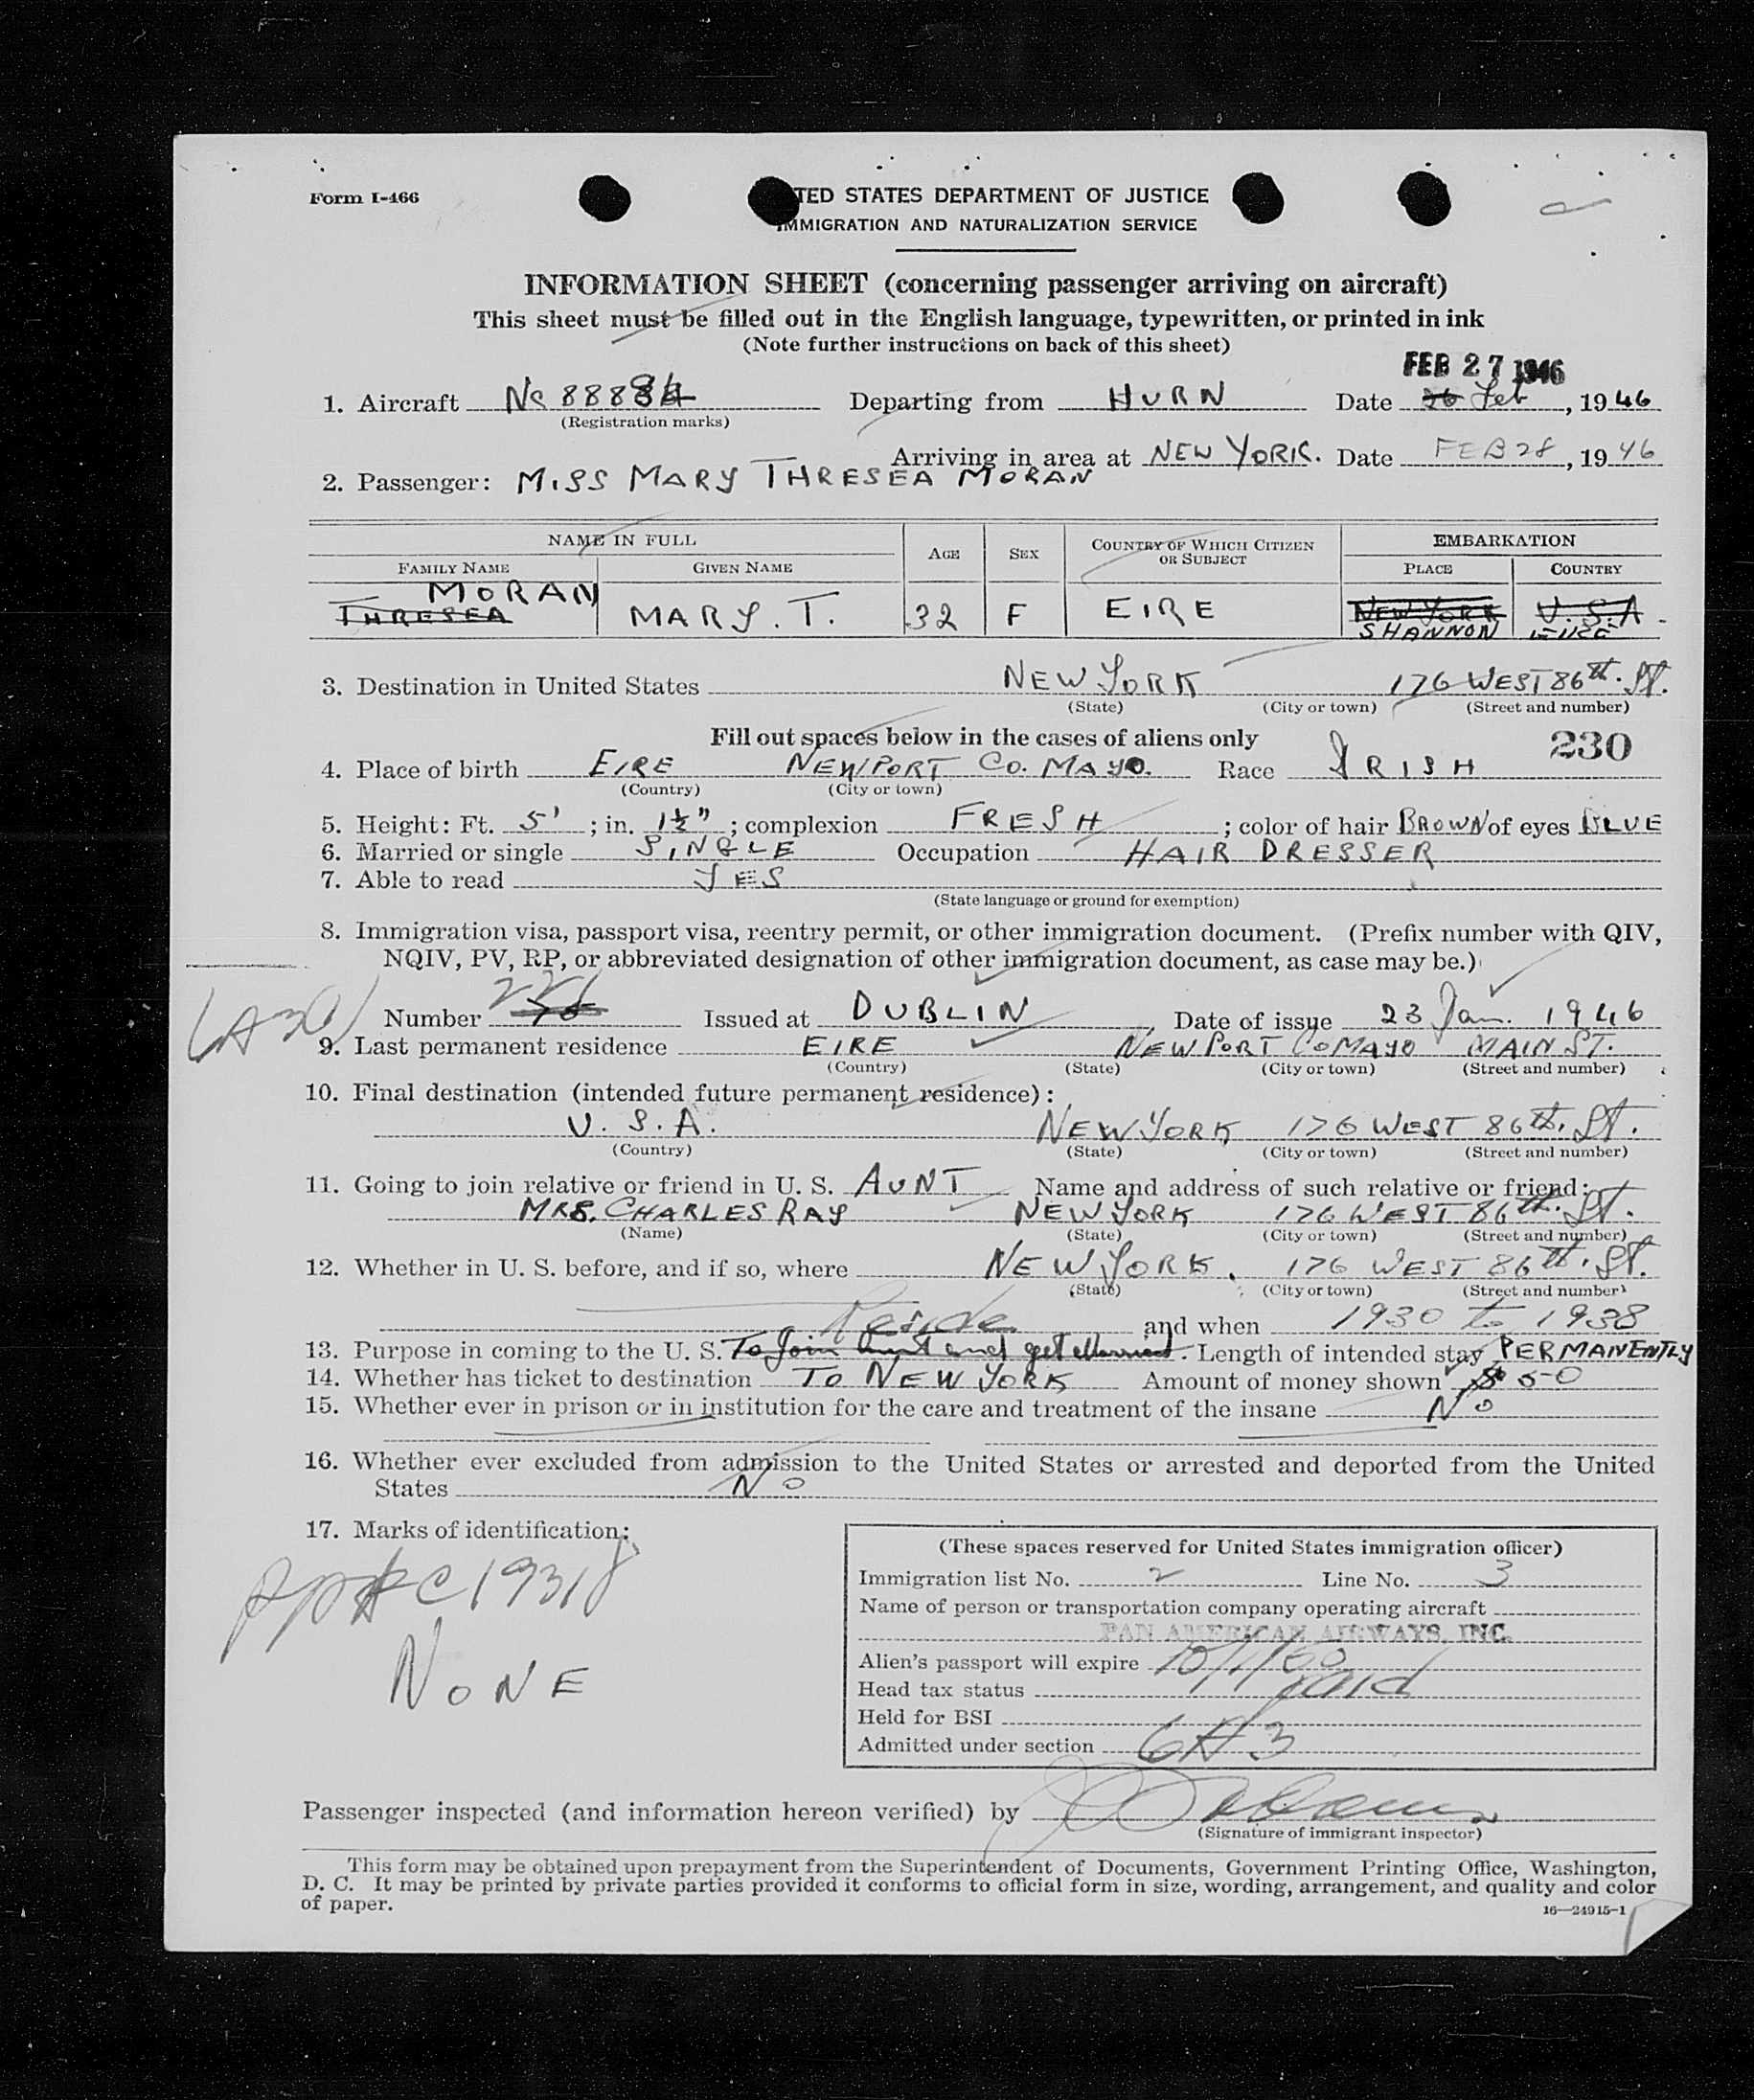 Form I-466
TED STATES DEPARTMENT OF JUSTICE
IMMIGRATION AND NATURALIZATION SERVICE
INFORMATION SHEET (concerning passenger arriving on aircraft)
This sheet must be filled out in the English language, typewritten, or printed in ink
(Note further instructions on back of this sheet)
FEB 27 1946
1. Aircraft Departing from HURN Date 26 Feb, 1946
(Registration marks)
Arriving in area at NEW YORK. Date FEB 28, 1946
2. Passenger: MISS MARY THRESEA MORAN
NAME IN FULL AGE SEX COUNTRY OF WHICH CITIZEN OR SUBJECT EMBARKATION
FAMILY NAME GIVEN NAME PLACE COUNTRY
MORAN
THRESEA MARY. T. 32 F EIRE NEW YORK U.S.A.
SHANNON EIRE
3. Destination in United States NEW YORK 176 WEST 86th. St.
(State) (City or town) (Street and number)
Fill out spaces below in the cases of aliens only 230
4. Place of birth EIRE NEWPORT CO. MAYO. Race IRISH
(Country) (City or town)
5. Height: Ft. 5' ; in. 1½" ; complexion FRESH ; color of hair BROWN of eyes BLUE
6. Married or single SINGLE Occupation HAIR DRESSER
7. Able to read YES
(State language or ground for exemption)
8. Immigration visa, passport visa, reentry permit, or other immigration document. (Prefix number with QIV,
NQIV, PV, RP, or abbreviated designation of other immigration document, as case may be.)
Number Issued at DUBLIN, Date of issue 23 Jan. 1946
9. Last permanent residence EIRE NEWPORT CO MAYO MAIN ST.
(Country) (State) (City or town) (Street and number)
10. Final destination (intended future permanent residence):
U. S. A. NEW YORK 176 WEST 86th. St.
(Country) (State) (City or town) (Street and number)
11. Going to join relative or friend in U. S. AUNT Name and address of such relative or friend:
MRS. CHARLES RAY NEW YORK 176 WEST 86th. St.
(Name) (State) (City or town) (Street and number)
12. Whether in U. S. before, and if so, where NEW YORK. 176 WEST 86th. St.
(State) (City or town) (Street and number)
and when 1930 to 1938
13. Purpose in coming to the U. S. To Join Aunt and get Married. Length of intended stay PERMANENTLY
14. Whether has ticket to destination TO NEW YORK Amount of money shown $ 50
15. Whether ever in prison or in institution for the care and treatment of the insane No
16. Whether ever excluded from admission to the United States or arrested and deported from the United
States No
17. Marks of identification:
NONE
(These spaces reserved for United States immigration officer)
Immigration list No. 2 Line No. 3
Name of person or transportation company operating aircraft
PAN AMERICAN AIRWAYS, INC.
Alien's passport will expire
Head tax status paid
Held for BSI
Admitted under section 6A3
Passenger inspected (and information hereon verified) by
(Signature of immigrant inspector)
This form may be obtained upon prepayment from the Superintendent of Documents, Government Printing Office, Washington,
D. C. It may be printed by private parties provided it conforms to official form in size, wording, arrangement, and quality and color
of paper.
16—24915-1